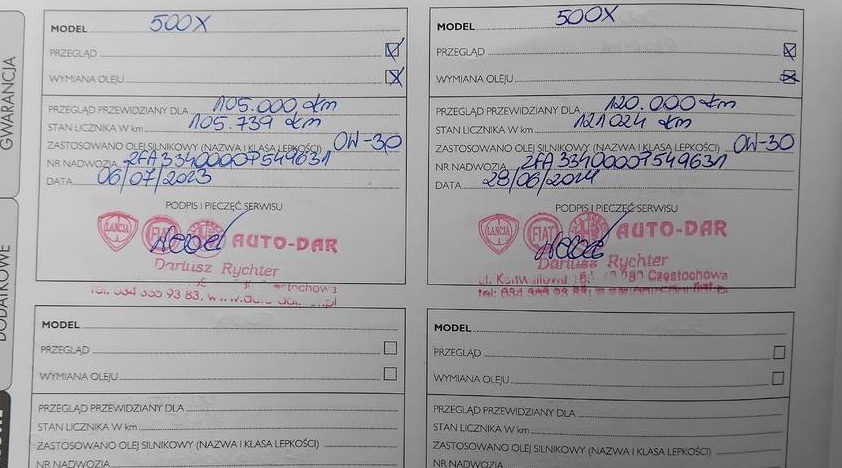 GWARANCJA
DODATKOWE
MODEL 500X
PRZEGLĄD
WYMIANA OLEJU
PRZEGLĄD PRZEWIDZIANY DLA 105.000 km
STAN LICZNIKA W km 105.739 km
ZASTOSOWANO OLEJ SILNIKOWY (NAZWA I KLASA LEPKOŚCI) 0W-30
NR NADWOZIA ZFA33400007549631
DATA 06/07/2023
PODPIS I PIECZĘĆ SERWISU
LANCIA FIAT AUTO-DAR
Dariusz Rychter
tel. 034 365 93 83,
MODEL 500X
PRZEGLĄD
WYMIANA OLEJU
PRZEGLĄD PRZEWIDZIANY DLA 120.000 km
STAN LICZNIKA W km 121024 km
ZASTOSOWANO OLEJ SILNIKOWY (NAZWA I KLASA LEPKOŚCI) 0W-30
NR NADWOZIA ZFA33400007549631
DATA 28/06/2024
PODPIS I PIECZĘĆ SERWISU
LANCIA FIAT AUTO-DAR
Dariusz Rychter
Częstochowa
MODEL
PRZEGLĄD
WYMIANA OLEJU
PRZEGLĄD PRZEWIDZIANY DLA
STAN LICZNIKA W km
ZASTOSOWANO OLEJ SILNIKOWY (NAZWA I KLASA LEPKOŚCI)
NR NADWOZIA
MODEL
PRZEGLĄD
WYMIANA OLEJU
PRZEGLĄD PRZEWIDZIANY DLA
STAN LICZNIKA W km
ZASTOSOWANO OLEJ SILNIKOWY (NAZWA I KLASA LEPKOŚCI)
NR NADWOZIA